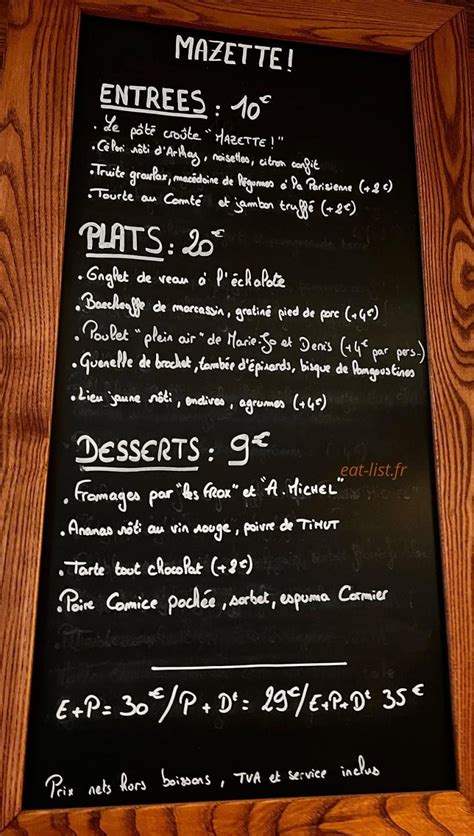 MAZETTE!
ENTREES : 10€
. Le pâté croûte "MAZETTE!"
. Céleri rôti d'Arthay, noisettes, citron confit
. Truite gravlax, macédoine de légumes à la Parisienne (+2€)
. Tourte au Comté et jambon truffé (+2€)
PLATS : 20€
. Onglet de veau à l'échalote
. Baeckeoffe de marcassin, gratiné pied de porc (+4€)
. Poulet "plein air" de Marie-Jo et Denis (+4€ par pers.)
. Quenelle de brochet, tombée d'épinards, bisque de langoustines
. Lieu jaune rôti, endives, agrumes (+4€)
DESSERTS : 9€
eat-list.fr
. Fromages par "les FROX" et "A. MICHEL"
. Ananas rôti au vin rouge, poivre de TIMUT
. Tarte tout chocolat (+2€)
. Poire Comice pochée, sorbet, espuma Cormier
E+P = 30€ / P + Dt = 29€ / E+P+Dt 35€
Prix nets hors boissons, TVA et service inclus